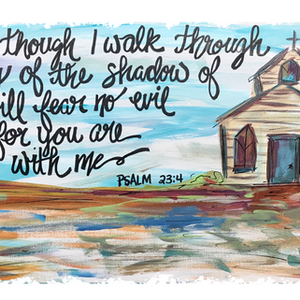 though I walk through
of the shadow of
ill fear no evil
for you are
with me
PSALM 23:4